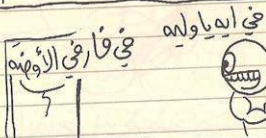 في ايه يا وليه
في فار في الأوضه